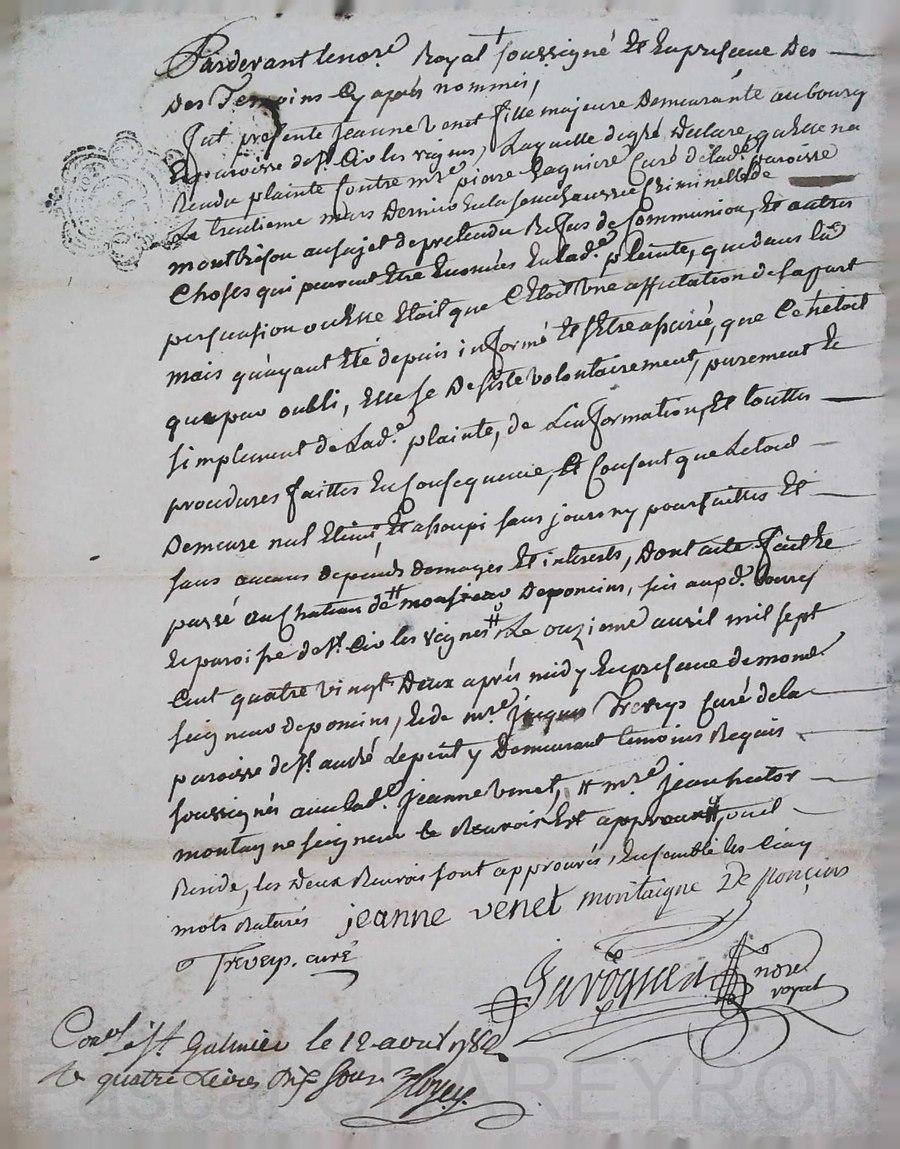 Pardevant le nore Royal soussigné Et En presence Des
Des Temoins Cy aprés nommés,
fut presente jeanne Venet fille majeure Demeurante au bourg
Et paroisse de st. Cir les vignes, Laquelle degré Declare, qu'Elle na
Rendu plainte Contre mre. piere Curé de lade. Paroisse
Le trentieme mars Dernier En la Senechaussée Criminelle de
montbrison au sujet de pretendu Refus de Communion, Et autres
Choses qui peuvent Etre Enoncées En lade. plainte, que dans la
persuasion ou Elle Etoit que C'Etoit Une affectation de sa part
mais qu'ayant Eté depuis informé Et S'Etre assurée, que Ce n'etoit
que par oubli, Elle se Desiste volontairement, purement Et
simplement de Lade. plainte, de L'information, Et touttes
procedures faittes En Consequence, Et Consent que Letout
Demeure nul Eteint, Et assoupi sans jours ny poursuittes Et
sans aucuns depends domages Et interests, Dont acte fait Et
passé au Chateau de monsieur Deponcins, sis aupd. bourg
Et paroisse de st. Cir les vignes Le onzieme avril mil sept
Cent quatre vingt Deux aprés midy En presence de mond.
seigneur deponcins, Et de mre. jacques Treveys Curé de la
paroisse de st. andré Lepuit y Demeurant temoins Requis
soussignés avec lad. jeanne Venet, # mre. jean hector
montaigne seigneur le Renvoi Est approuvé # ou il
Reside, les Deux Renvois sont approuvés, Ensemble les Cinq
mots Raturés jeanne venet montaigne De Ponçins
Treveys. curé
nore
royal
Conlé à st. Galmier le 12 avril 1782
R quatre Livres Dix sous